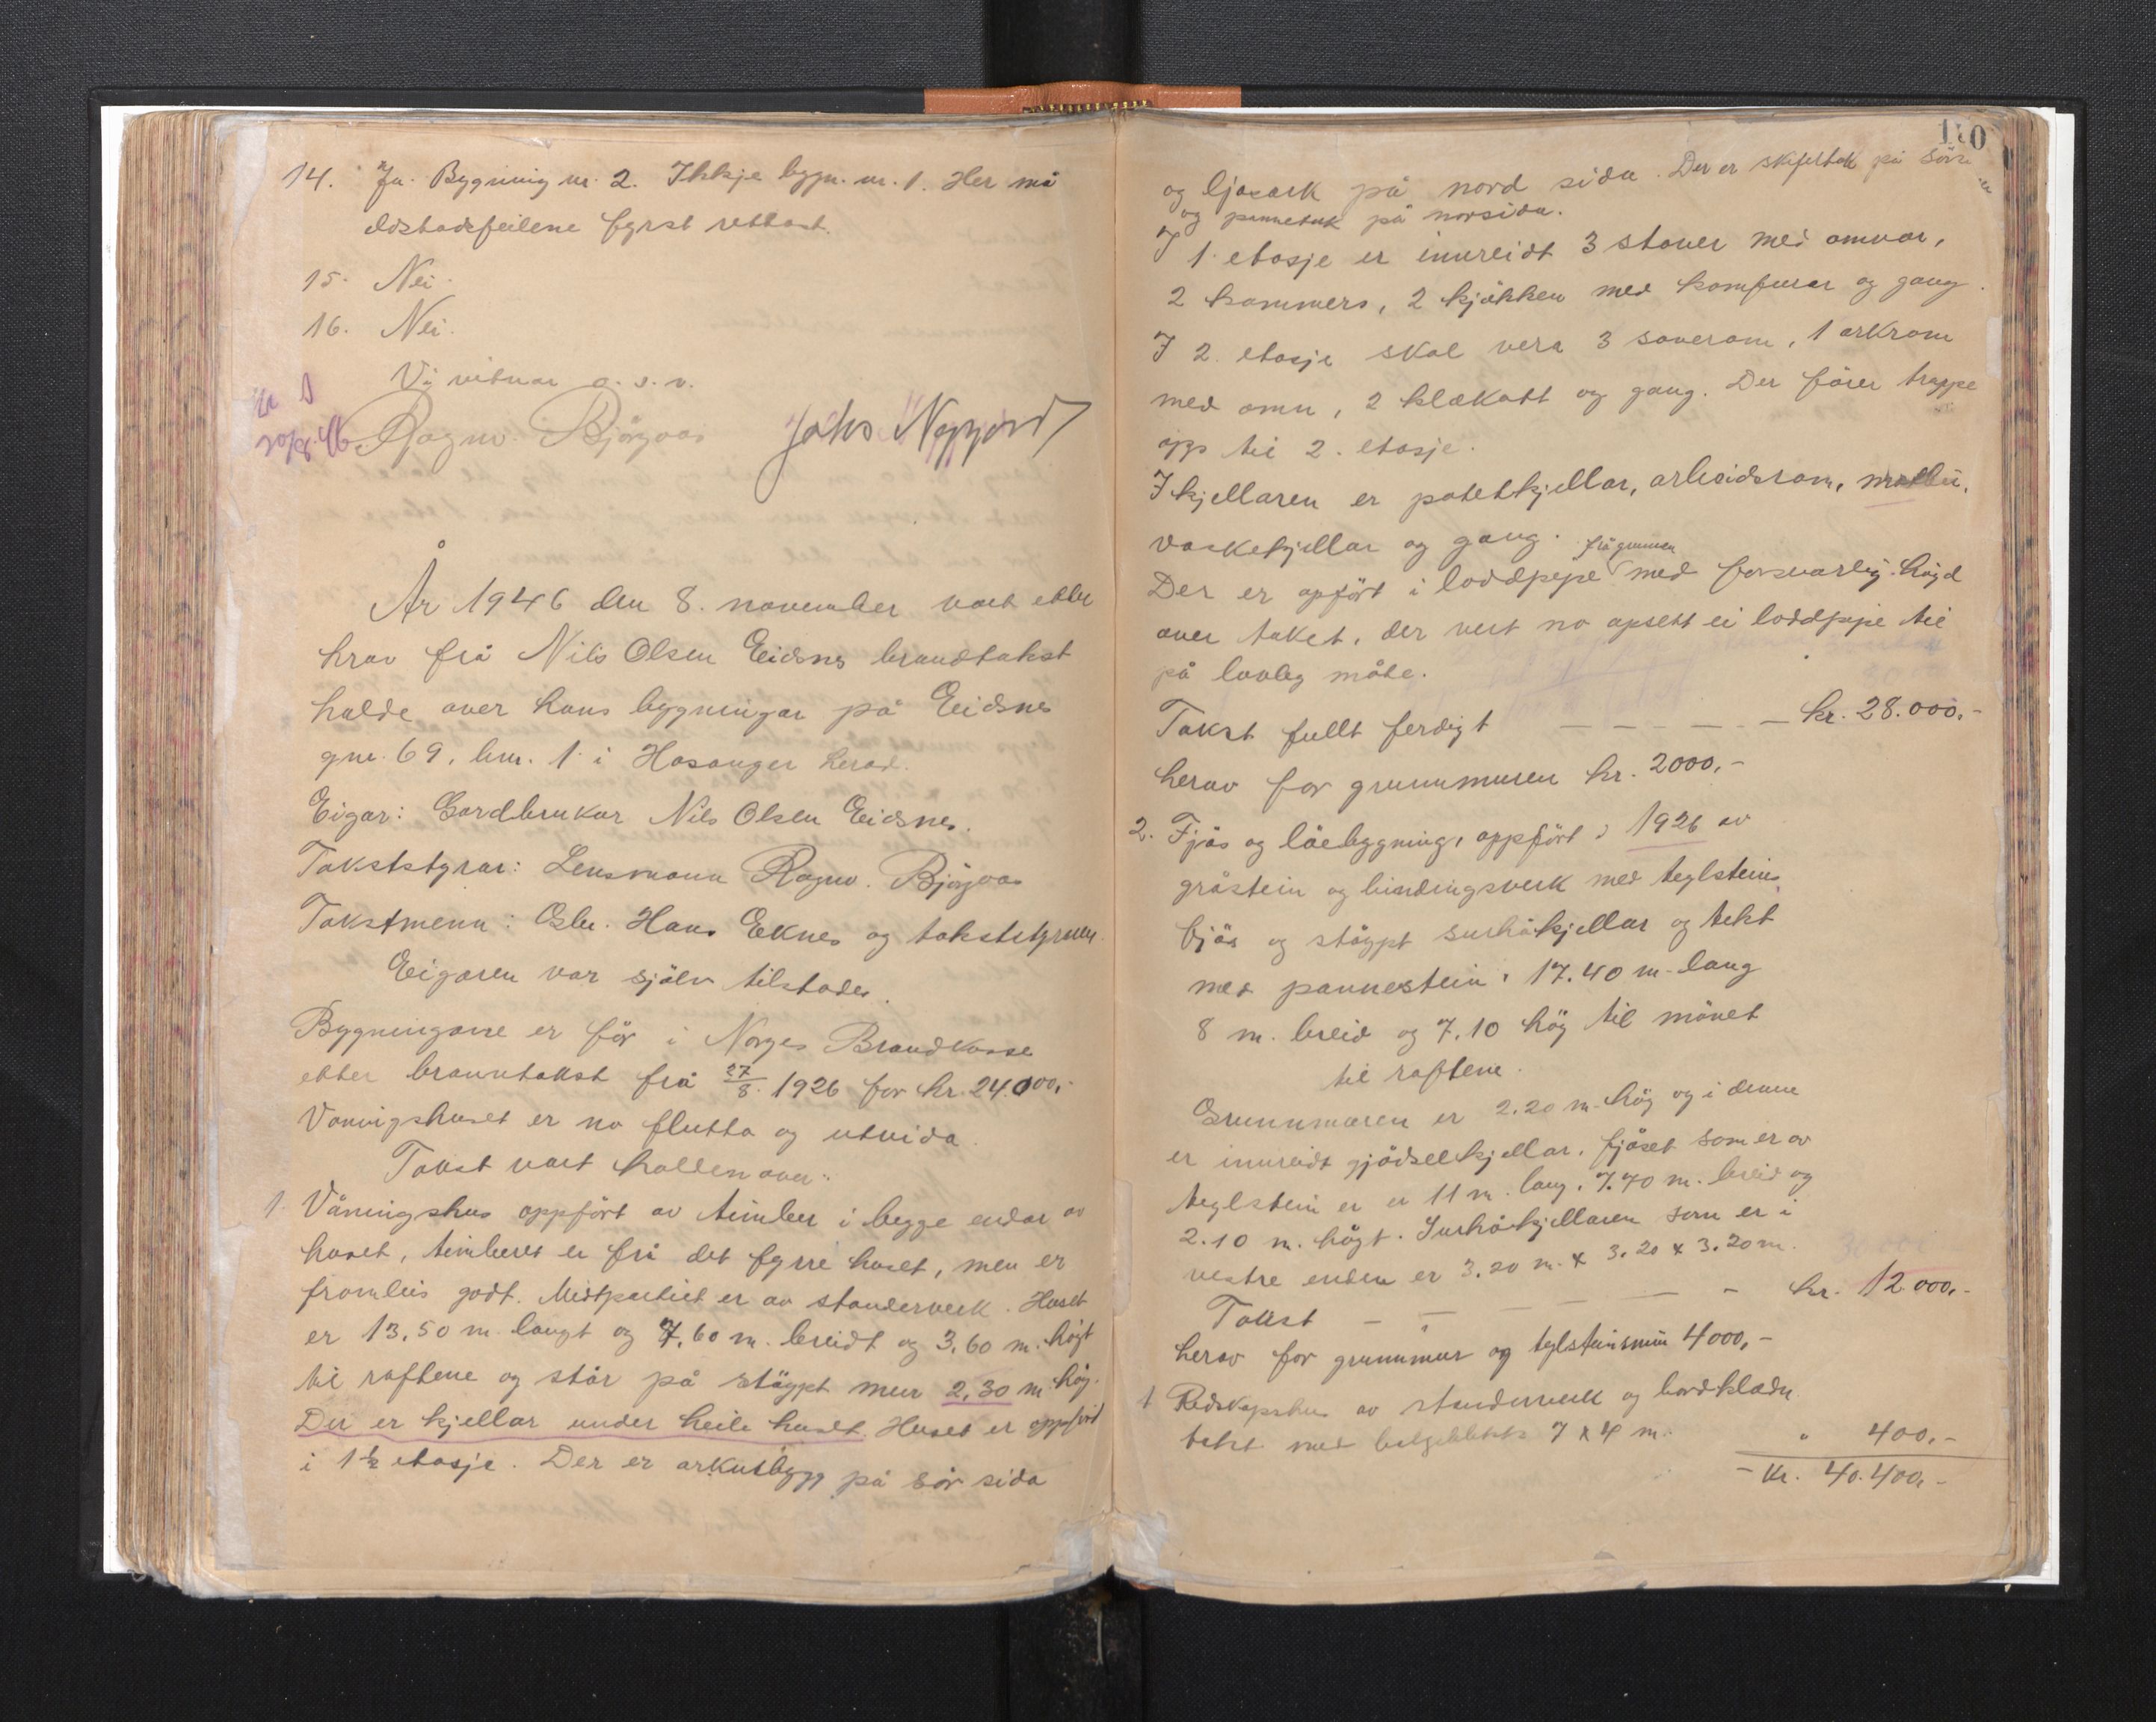 14. Ja. Bygning nr. 2. Ikkje bygn. nr. 1. Her må
eldstadsfeilene fyrst rettast.
15. Nei.
16. Nei.
Vi vitnar o. s. v.
Ragnv. Bjørgaas Johs Nepjord
År 1946 den 8. november vart etter
krav frå Nils Olsen Eidsnes brandtakst
halde over hans bygningar på Eidsnes
gnr. 69, bnr. 1 i Hosanger herad.
Eigar: Gardbrukar Nils Olsen Eidsnes.
Takststyrar: Lensmann Ragnv. Bjørgaas
Takstmenn: Gbr. Hans Eknes og takststyraren.
Eigaren var sjølv tilstades.
Bygningane er før i Norges Brandkasse
etter branntakst frå 27/8. 1926 for kr. 24.000,-
Vaningshuset er no flutta og utvida.
Takst vart hallen over:
1. Våningshus oppført av timber i begge endar av
huset, timberet er frå det fyrre huset, men er
framleis godt. Midtpartiet er av standerverk. Huset
er 13,50 m. langt og 7,60 m. breidt og 3,60 m. høgt
til raftene og står på støypt mur 2,30 m. høg.
Der er kjellar under heile huset. Huset er oppført
i 1½ etasje. Der er arkutbygg på sør sida
110
og ljosark på nord sida. Der er skifertak på søre
og pannetak på norsida.
I 1. etasje er innreidt 3 stover med omnar,
2 kammers, 2 kjøkken med komfurar og gang.
I 2. etasje skal vera 3 soverom, 1 arkrom
med omn, 2 klækott og gang. Der fører trappe
opp til 2. etasje.
I kjellaren er potetkjellar, arbeidsrom, matbu,
vaskekjellar og gang.
Der er opført i loddpipe frå grunnen med forsvarlig høgd
over taket, der vert no opsett ei loddpipe til
på lovleg måte.
Takst fullt ferdigt — — — — kr. 28.000,-
herav for grunnmuren kr. 2000,-
2. Fjøs og løebygning, oppført i 1926 av
gråstein og bindingsverk med teglsteins
fjøs og støypt surhøkjellar og tekt
med pannestein, 17.40 m. lang
8 m. breid og 7,10 høg til mønet
til raftene.
Grunnmuren er 2.20 m. høg og i denne
er innreidt gjødselkjellar. Fjøset som er av
teglstein er er 11 m. lang, 7.70 m. breid og
2.10 m. høgt. Surhøkjellaren som er i
vestre enden er 3.20 m. x 3.20 x 3.20 m.
Takst — — — — — kr. 12.000,-
herav for grunnmur og teglsteinsmur 4000,-
1 Redskapshus av standerverk og bordklædn
tekt med bølgeblekk 7 x 4 m. " 400,-
Kr. 40.400,-